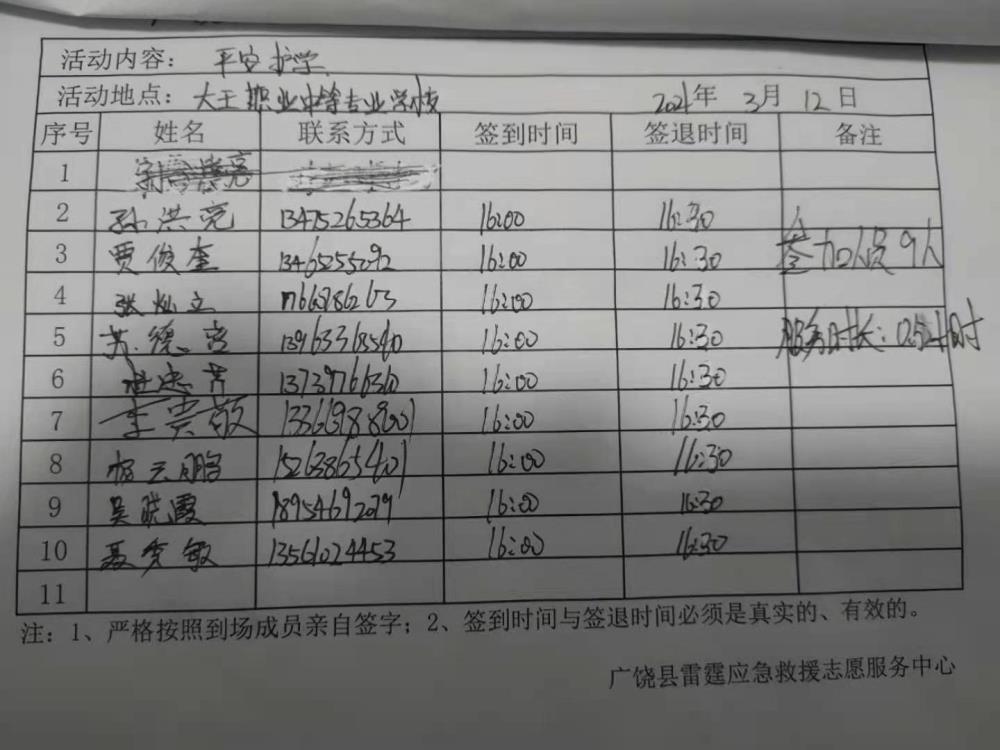 活动内容： 平安护学
活动地点： 大王职业中等专业学校 2021年 3月 12日
序号 姓名 联系方式 签到时间 签退时间 备注
1
2 孙洪亮 13475265364 16:00 16:30
3 贾俊奎 13465255292 16:00 16:30 参加人员9人
4 张灿立 16:00 16:30
5 苏德亮 13963368540 16:00 16:30 服务时长：0.5小时
6 13739766360 16:00 16:30
7 李云敬 13361988001 16:00 16:30
8 杨云鹏 15263865401 16:00 16:30
9 吴晓霞 18954692079 16:00 16:30
10 聂秀敏 13561024453 16:00 16:30
11
注：1、严格按照到场成员亲自签字；2、签到时间与签退时间必须是真实的、有效的。
广饶县雷霆应急救援志愿服务中心